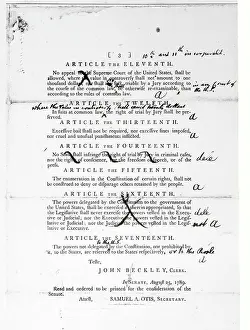 [ 3 ]
ARTICLE THE ELEVENTH.
No appeal to the Supreme Court of the United States, shall be
allowed, where the value in controversy shall not amount to one
thousand dollars, nor shall any fact, triable by a Jury according to
the course of the common law, be otherwise re-examinable, than
according to the rules of common law.
in any Court of
a
where the
dollars
ARTICLE THE TWELFTH.
In suits at common law, the right of trial by Jury shall be
a
ARTICLE THE THIRTEENTH.
Excessive bail shall not be required, nor excessive fines imposed,
nor cruel and unusual punishments inflicted.
a
ARTICLE THE FOURTEENTH.
No State shall infringe the right of trial by Jury in criminal cases,
nor the rights of conscience, nor the freedom of speech, or of the
press.
ARTICLE THE FIFTEENTH.
The enumeration in the Constitution of certain rights, shall not
be construed to deny or disparage others retained by the people.
a
ARTICLE THE SIXTEENTH.
The powers delegated by the Constitution to the government of
the United States, shall be exercised as therein appropriated, so that
the Legislative shall never exercise the powers vested in the Executive
or Judicial; nor the Executive the powers vested in the Legislative
or Judicial; nor the Judicial the powers vested in the Legislative
or Executive.
not a
ARTICLE THE SEVENTEENTH.
The powers not delegated by the Constitution, nor prohibited by
it, to the States, are reserved to the States respectively.
or to the people
a
Teste,
JOHN BECKLEY, CLERK.
IN SENATE, August 25, 1789.
Read and ordered to be printed for the consideration of the
Senate.
Attest, SAMUEL A. OTIS, SECRETARY.